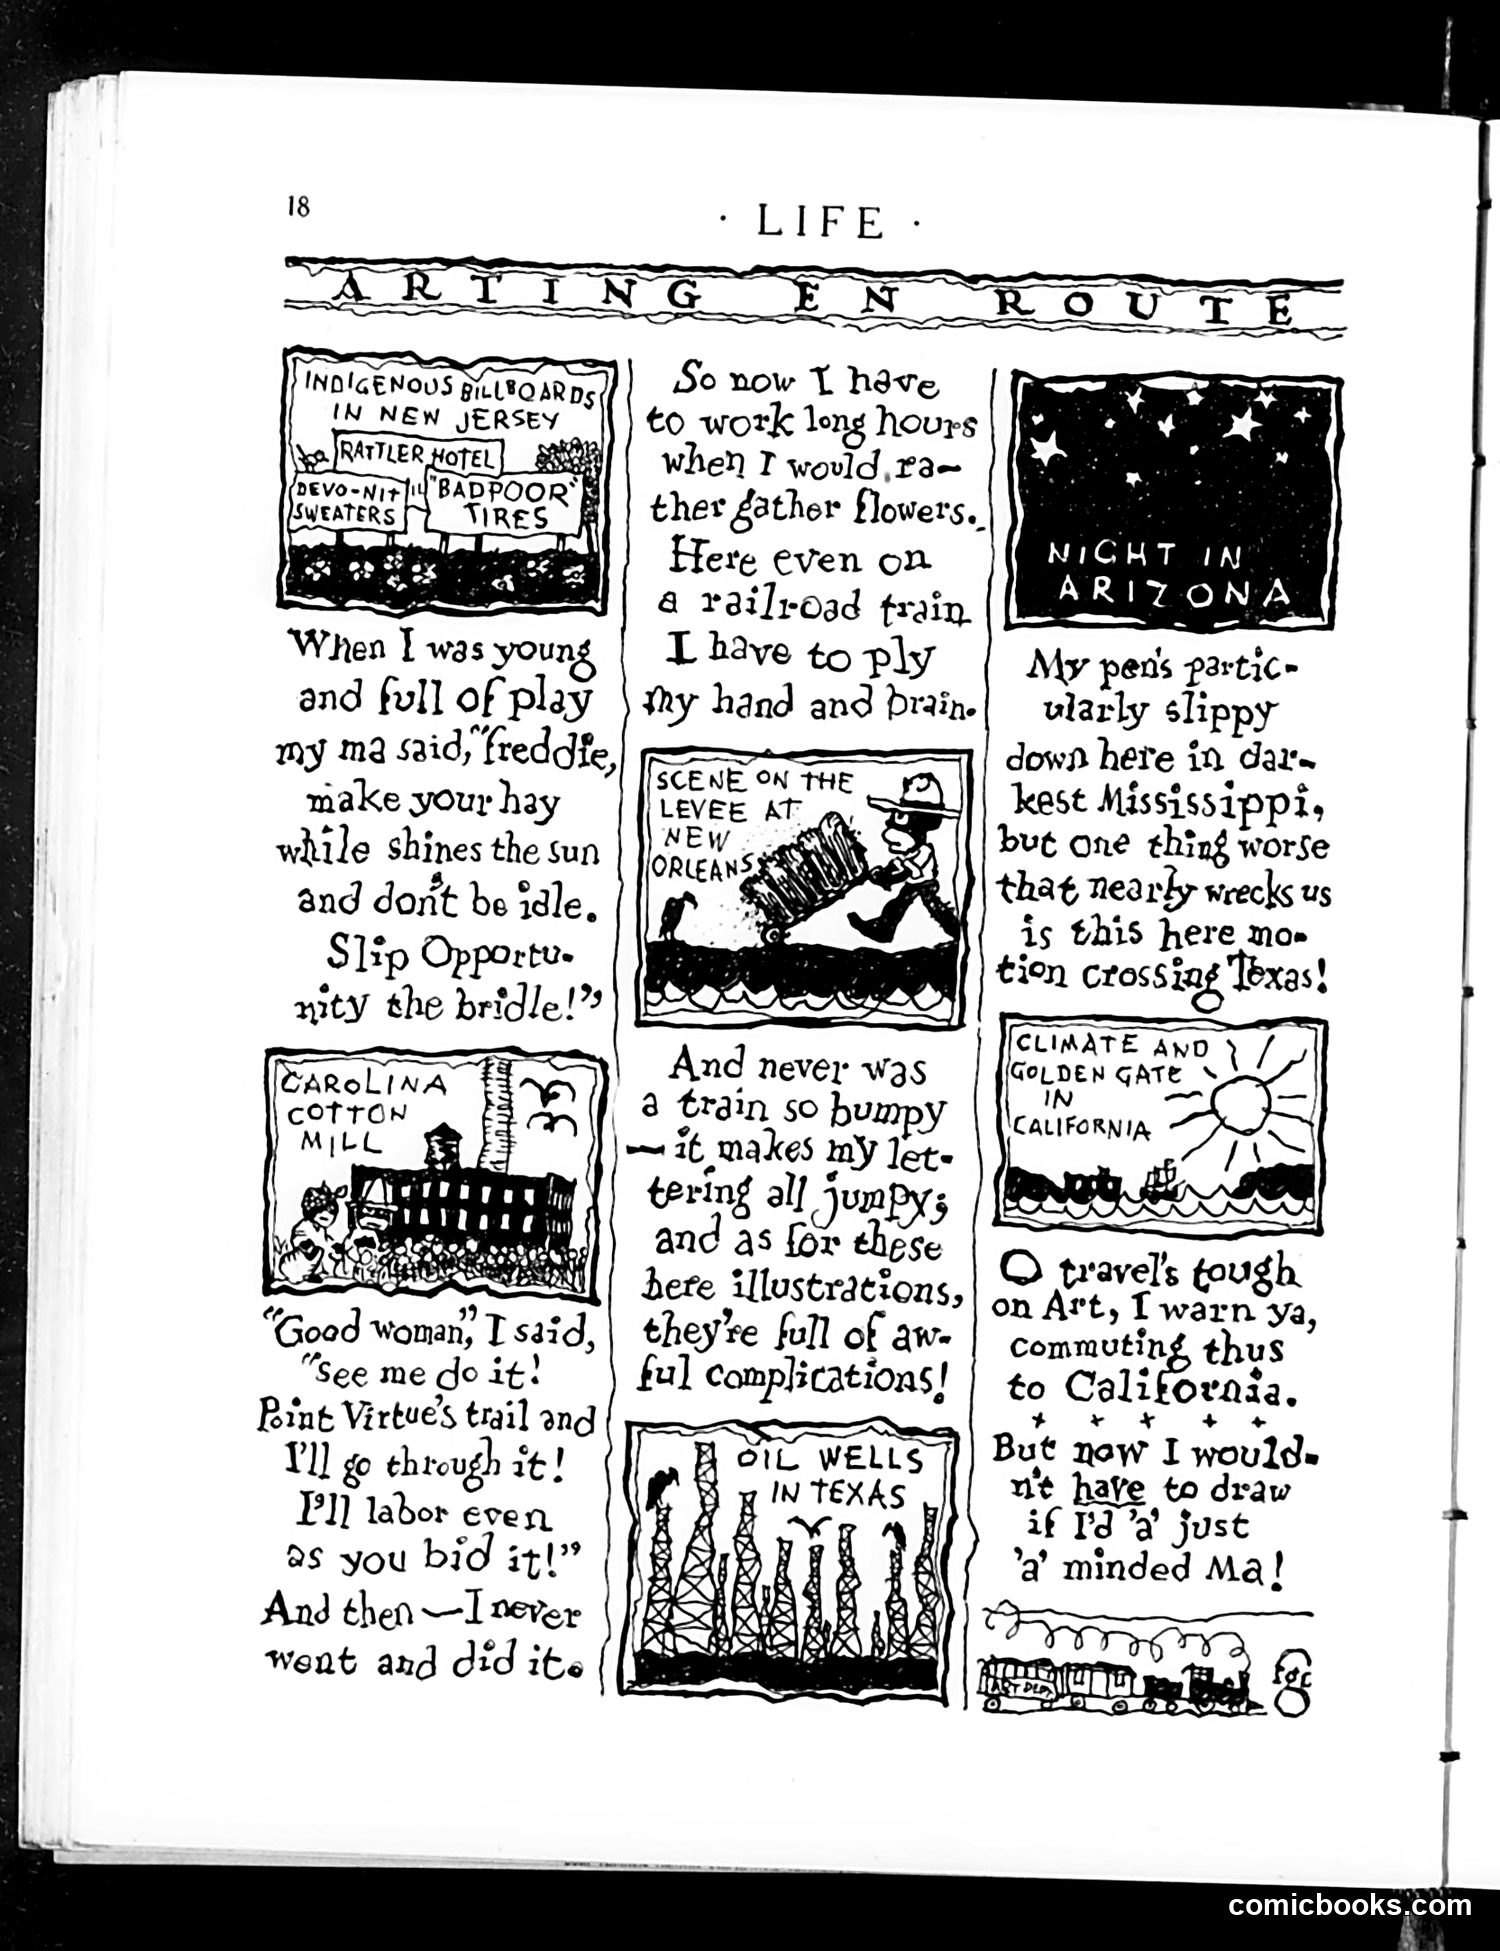 18
· LIFE ·
ARTING EN ROUTE
INDIGENOUS BILLBOARDS
IN NEW JERSEY
RATTLER HOTEL
DEVO-NIT
SWEATERS
"BADPOOR"
TIRES
When I was young
and full of play
my ma said, "freddie,
make your hay
while shines the sun
and don't be idle.
Slip Opportu-
nity the bridle!"
CAROLINA
COTTON
MILL
"Good woman," I said,
"see me do it!
Point Virtue's trail and
I'll go through it!
I'll labor even
as you bid it!"
And then—I never
went and did it.
So now I have
to work long hours
when I would ra-
ther gather flowers.
Here even on
a railroad train
I have to ply
my hand and brain.
SCENE ON THE
LEVEE AT
NEW
ORLEANS
And never was
a train so bumpy
—it makes my let-
tering all jumpy;
and as for these
here illustrations,
they're full of aw-
ful complications!
OIL WELLS
IN TEXAS
NIGHT IN
ARIZONA
My pen's partic-
ularly slippy
down here in dar-
kest Mississippi,
but one thing worse
that nearly wrecks us
is this here mo-
tion crossing Texas!
CLIMATE AND
GOLDEN GATE
IN
CALIFORNIA
O travel's tough
on Art, I warn ya,
commuting thus
to California.
+ + + + +
But now I would-
n't have to draw
if I'd 'a' just
'a' minded Ma!
ART DEPT.
fgc
comicbooks.com